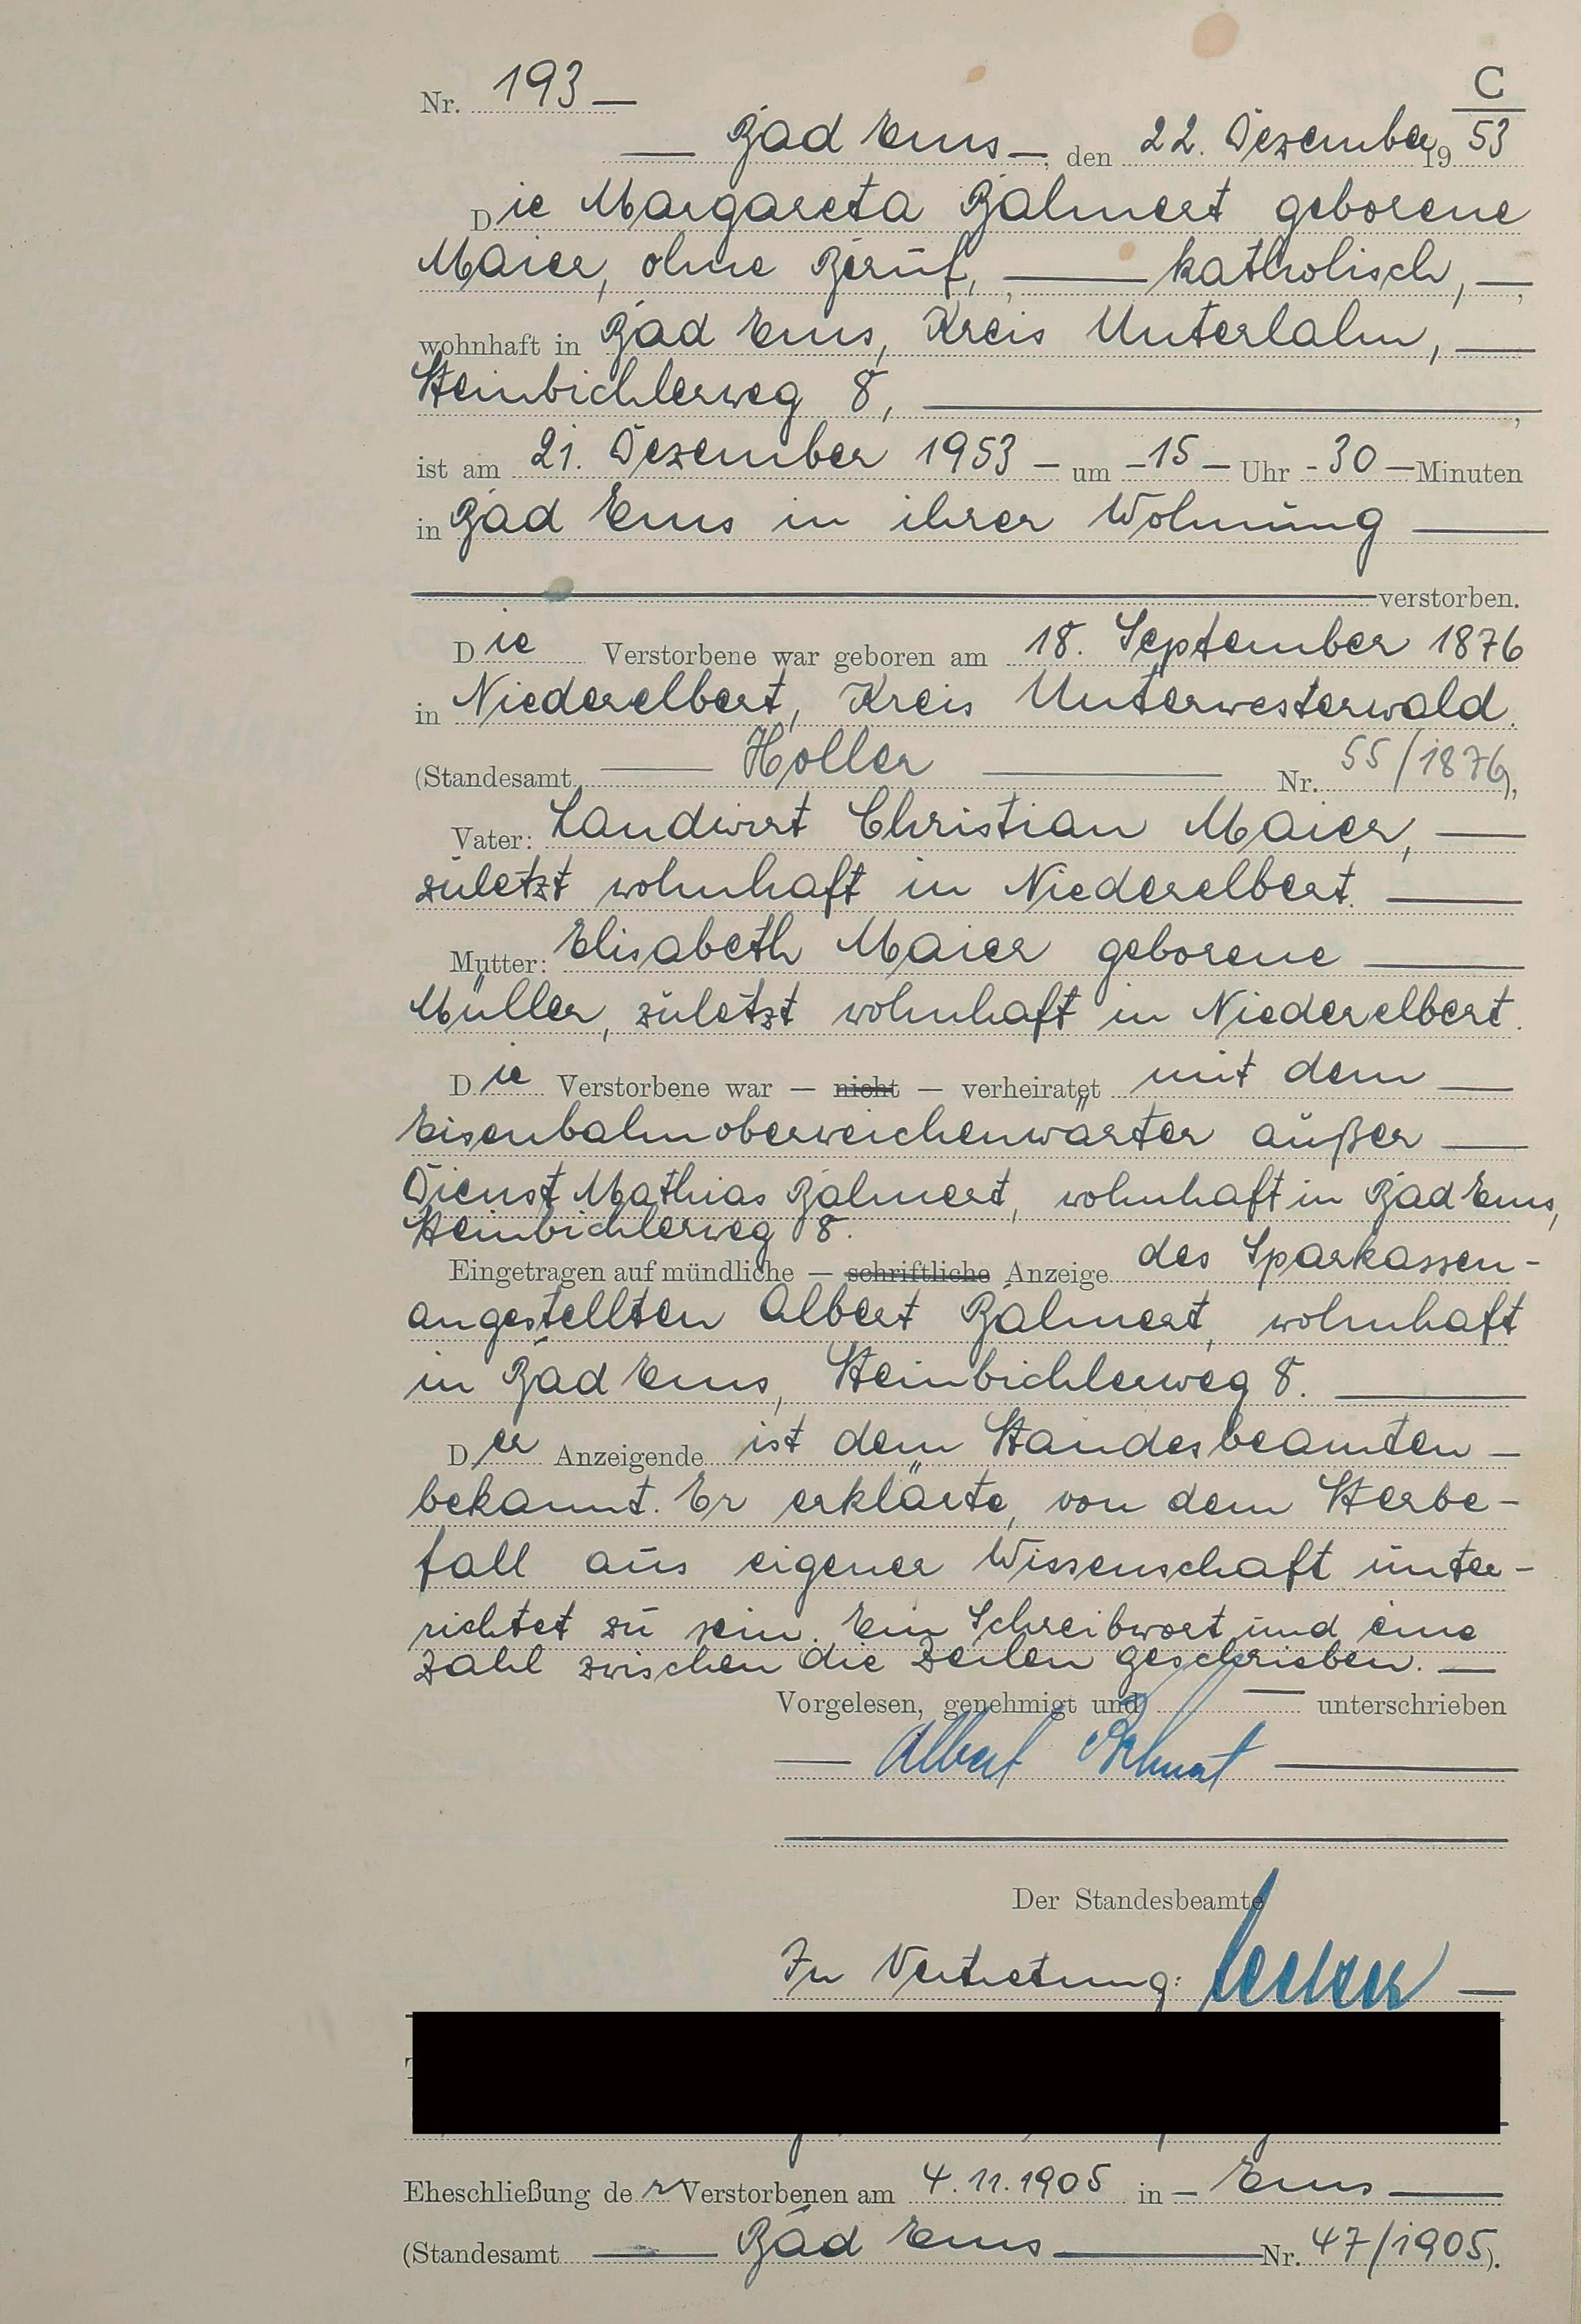 C
Nr. 193 —
— Bad Ems —, den 22. Dezember 19 53
Die Margareta Balmert geborene
Maier, ohne Beruf, — katholisch, —,
wohnhaft in Bad Ems, Kreis Unterlahn, —
Steinbichlerweg 8, —,
ist am 21. Dezember 1953 — um — 15 — Uhr - 30 — Minuten
in Bad Ems in ihrer Wohnung —
— verstorben.
Die Verstorbene war geboren am 18. September 1876
in Niederelbert, Kreis Unterwesterwald.
(Standesamt — Holler — Nr. 55/1876),
Vater: Landwirt Christian Maier, —
zuletzt wohnhaft in Niederelbert. —
Mutter: Elisabeth Maier geborene —
Müller, zuletzt wohnhaft in Niederelbert.
Die Verstorbene war — nicht — verheiratet mit dem —
Eisenbahnoberweichenwärter außer —
Dienst Mathias Balmert, wohnhaft in Bad Ems,
Steinbichlerweg 8.
Eingetragen auf mündliche — schriftliche Anzeige des Sparkassen-
angestellten Albert Balmert, wohnhaft
in Bad Ems, Steinbichlerweg 8. —
Der Anzeigende ist dem Standesbeamten —
bekannt. Er erklärte, von dem Sterbe-
fall aus eigener Wissenschaft unter-
richtet zu sein. Ein Schreibwort und eine
Zahl zwischen die Zeilen geschrieben. —
Vorgelesen, genehmigt und — unterschrieben
— Albert Balmert —
Der Standesbeamte
In Vertretung: —
Eheschließung der Verstorbenen am 4.11.1905 in — Ems —
(Standesamt — Bad Ems — Nr. 47/1905).